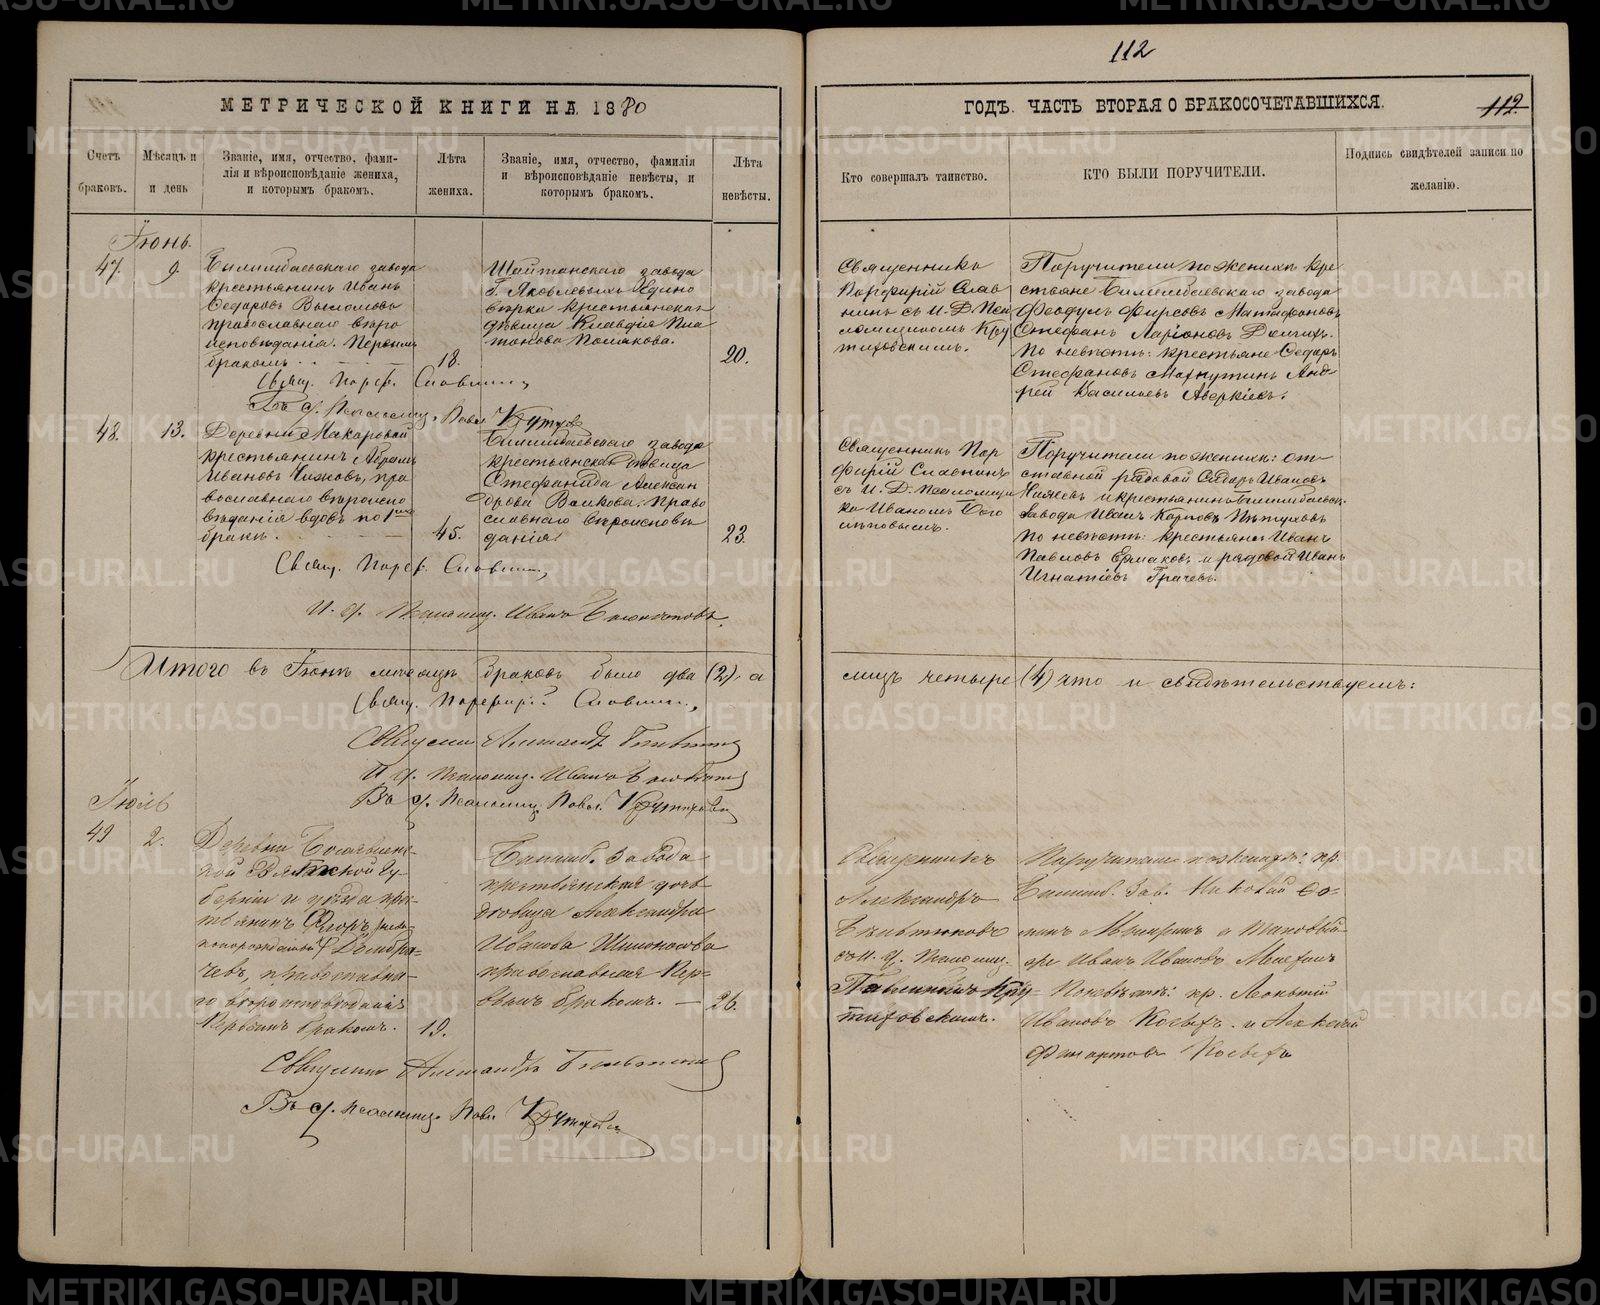 112
МЕТРИЧЕСКОЙ КНИГИ НА 1880
ГОДЪ. ЧАСТЬ ВТОРАЯ О БРАКОСОЧЕТАВШИХСЯ.
112.
Счетъ браковъ.
Мѣсяцъ и день
Званіе, имя, отчество, фами-
лія и вѣроисповѣданіе жениха,
и которымъ бракомъ.
Лѣта жениха.
Званіе, имя, отчество, фамилія
и вѣроисповѣданіе невѣсты, и
которымъ бракомъ.
Лѣта невѣсты.
Кто совершалъ таинство.
КТО БЫЛИ ПОРУЧИТЕЛИ.
Подпись свидѣтелей записи по
желанію.
Іюнь.
47.
9.
Билимбаевскаго завода
крестьянинъ Иванъ
Ѳедоровъ
православнаго вѣро
исповѣданія. Первымъ
бракомъ.
18.
Шайтанскаго завода
Г. Яковлевыхъ Едино
вѣрка крестьянская
дѣвица Клавдія Пла
тонова Полякова.
20.
Священникъ
Порфирій Слав
нинъ съ И. Д. Пса
ломщикомъ Кру
тиховскимъ.
Поручители по женихѣ кре
стьяне Билимбаевскаго завода
Феодулъ Фирсовъ
Стефанъ Ларіоновъ
По невѣстѣ: крестьяне Ѳедоръ
Стефановъ Махнутинъ Анд-
рей Васильевъ Аверкіевъ.
Свящ. Порф. Славнинъ
48.
13.
Деревни Макаровой
крестьянинъ Абрамъ
Ивановъ Чижовъ, пра
вославнаго вѣроиспо
вѣданія вдовъ по 1мъ
бракѣ.
45.
Билимбаевскаго завода
крестьянская дѣвица
Стефанида Алексан
дрова Волкова. Право
славнаго вѣроисповѣ
данія
23.
Священникъ Пор
фирій Славнинъ
съ И. Д. Псаломщи
ка Иваномъ Бого
лѣповымъ.
Поручители по женихѣ: от-
ставной рядовой Ѳедоръ Ивановъ
и крестьянинъ Билимбаевск.
завода Иванъ Карповъ Пѣтуховъ
По невѣстѣ: крестьяне Иванъ
Павловъ Ермаковъ и рядовой Иванъ
Игнатіевъ Грачевъ.
Свящ. Порф. Славнинъ
И. д. Псаломщ. Иванъ
Итого въ Іюнѣ мѣсяцѣ браковъ было два (2), а
лицъ четыре (4) что и свидѣтельствуемъ:
Свящ. Порфирій Славнинъ,
Священникъ Александръ
И. д. Псаломщ. Иванъ
Въ д. Псаломщ. Павел. Крутиховскій
Іюль
49
2.
Деревни
Вятской Гу-
берніи и уѣзда кре-
стьянинъ Егоръ
православна-
го вѣроисповѣданія
Первымъ бракомъ.
19.
Билимб. Завода
крестьянская дочь
дѣвица Александра
Иванова
православная Пер-
вымъ бракомъ. —
26.
Священникъ
Александръ
съ И. д. Псаломщ.
Павлиномъ Кру-
тиховскимъ.
Поручители по женихѣ: кр.
Билимб. зав. Николай
Иванъ Ивановъ
По невѣстѣ: кр. Леонтій
Ивановъ Косыхъ и Алексѣй
Косыхъ
Священникъ Александръ
Въ д. псаломщ. Павл. Крутиховскій
METRIKI.GASO-URAL.RU